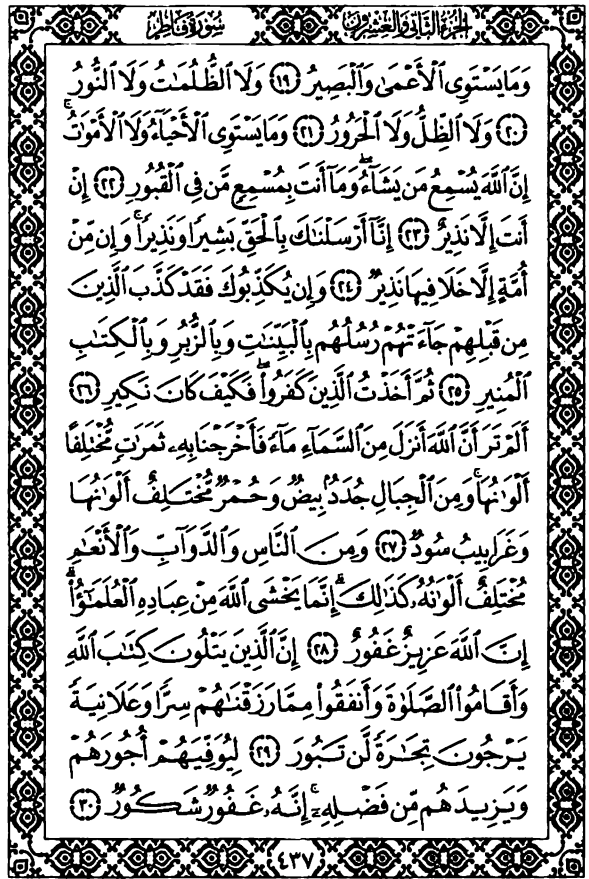 الجزء الثاني والعشرون سورة فاطر
وَمَا يَسْتَوِى ٱلْأَعْمَىٰ وَٱلْبَصِيرُ ۝١٩ وَلَا ٱلظُّلُمَـٰتُ وَلَا ٱلنُّورُ
۝٢٠ وَلَا ٱلظِّلُّ وَلَا ٱلْحَرُورُ ۝٢١ وَمَا يَسْتَوِى ٱلْأَحْيَآءُ وَلَا ٱلْأَمْوَٰتُ ۚ
إِنَّ ٱللَّهَ يُسْمِعُ مَن يَشَآءُ ۖ وَمَآ أَنتَ بِمُسْمِعٍ مَّن فِى ٱلْقُبُورِ ۝٢٢ إِنْ
أَنتَ إِلَّا نَذِيرٌ ۝٢٣ إِنَّآ أَرْسَلْنَـٰكَ بِٱلْحَقِّ بَشِيرًا وَنَذِيرًا ۚ وَإِن مِّنْ
أُمَّةٍ إِلَّا خَلَا فِيهَا نَذِيرٌ ۝٢٤ وَإِن يُكَذِّبُوكَ فَقَدْ كَذَّبَ ٱلَّذِينَ
مِن قَبْلِهِمْ جَآءَتْهُمْ رُسُلُهُم بِٱلْبَيِّنَـٰتِ وَبِٱلزُّبُرِ وَبِٱلْكِتَـٰبِ
ٱلْمُنِيرِ ۝٢٥ ثُمَّ أَخَذْتُ ٱلَّذِينَ كَفَرُوا۟ ۖ فَكَيْفَ كَانَ نَكِيرِ ۝٢٦
أَلَمْ تَرَ أَنَّ ٱللَّهَ أَنزَلَ مِنَ ٱلسَّمَآءِ مَآءً فَأَخْرَجْنَا بِهِۦ ثَمَرَٰتٍ مُّخْتَلِفًا
أَلْوَٰنُهَا ۚ وَمِنَ ٱلْجِبَالِ جُدَدٌۢ بِيضٌ وَحُمْرٌ مُّخْتَلِفٌ أَلْوَٰنُهَا
وَغَرَابِيبُ سُودٌ ۝٢٧ وَمِنَ ٱلنَّاسِ وَٱلدَّوَآبِّ وَٱلْأَنْعَـٰمِ
مُخْتَلِفٌ أَلْوَٰنُهُۥ كَذَٰلِكَ ۗ إِنَّمَا يَخْشَى ٱللَّهَ مِنْ عِبَادِهِ ٱلْعُلَمَـٰٓؤُا۟ ۗ
إِنَّ ٱللَّهَ عَزِيزٌ غَفُورٌ ۝٢٨ إِنَّ ٱلَّذِينَ يَتْلُونَ كِتَـٰبَ ٱللَّهِ
وَأَقَامُوا۟ ٱلصَّلَوٰةَ وَأَنفَقُوا۟ مِمَّا رَزَقْنَـٰهُمْ سِرًّا وَعَلَانِيَةً
يَرْجُونَ تِجَـٰرَةً لَّن تَبُورَ ۝٢٩ لِيُوَفِّيَهُمْ أُجُورَهُمْ
وَيَزِيدَهُم مِّن فَضْلِهِۦٓ ۚ إِنَّهُۥ غَفُورٌ شَكُورٌ ۝٣٠
٤٣٧